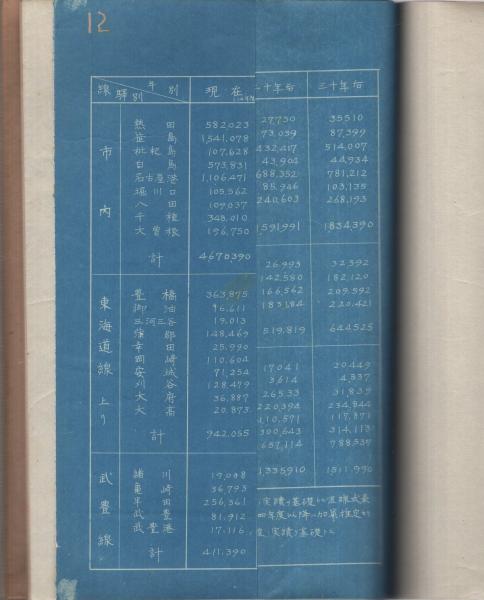 12
線 驛別 年別 現在 二十年后 三十年后
市内
熱田 582,023
笹島 1,541,078
枇杷島 107,628
白鳥 573,831
名古屋港 1,106,471
堀川口 105,562
八田 109,037
千種 348,010
大曽根 196,750
計 4670390
27,730 35510
73,039 87,399
432,417 514,007
43,904 44,934
688,352 781,212
85,946 103,135
240,603 268,193
1591991 1834390
東海道線上り
豊橋 363,875
御油 96,611
三河三谷 19,013
蒲郡 148,469
幸田 25,990
岡崎 110,604
安城 71,254
刈谷 128,479
大府 36,887
大高 20,873
計 942,055
26,993 32,392
142,580 182,120
166,562 209,592
183,184 220,421
519,819 644,525
17041 20449
3,614 4,337
26533 31,839
220,394 234,844
110,571 117,871
300,643 314,113
657,114 788,537
1,335,910 1,511,990
武豊線
緒川 19,008
亀崎 36,793
半田 256,561
武豊 81,912
武豊港 17,116
計 411,390
実績ヲ基礎ニ直線式最
四年度以降ハ加算推定セ
実績ヲ基礎ニ